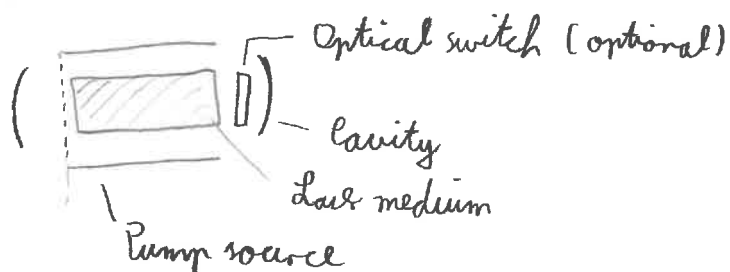 Optical switch (optional)
Cavity
Laser medium
Pump source